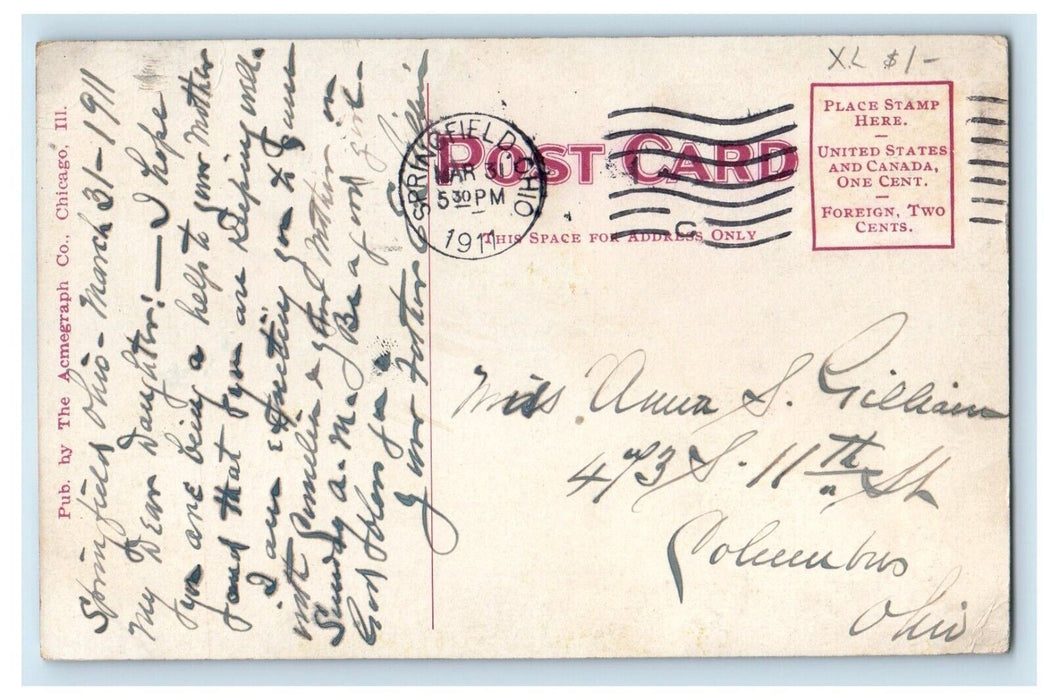 Pub. by The Acmegraph Co., Chicago, Ill.
Springfield Ohio - March 31 - 1911
My Dear Daughter: — I hope
you are being a help to your Mother
and that you are keeping well.
I am expecting you & June
with Sunelin & your Mother on
Sunday a.m. Be a good girl.
God bless you -
Your Father Gilliam
SPRINGFIELD, OHIO
MAR 31
5 30 PM
1911
POST CARD
THIS SPACE FOR ADDRESS ONLY
XL $1-
PLACE STAMP
HERE.
UNITED STATES
AND CANADA,
ONE CENT.
FOREIGN, TWO
CENTS.
C
Miss Anna S. Gilliam
473 S. 11th St
Columbus
Ohio